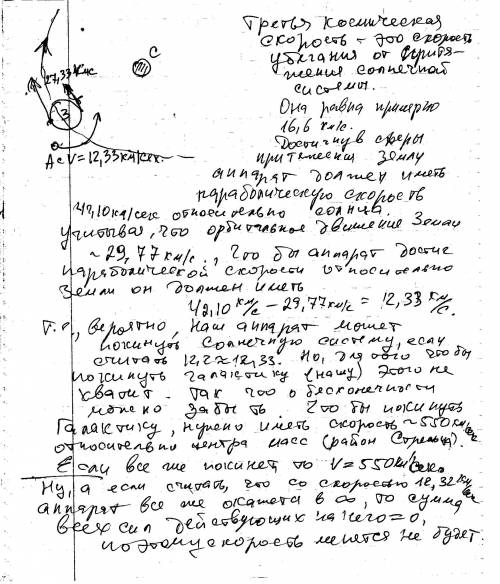 Третья космическая
скорость - это скорость
убегания от притя-
жения солнечной
системы.
С
27,33 км/с
Она равна примерно
16,6 км/с.
З
Достигнув сферы
А с V = 12,33 км/сек.
притяжения Землу
аппарат должен иметь
параболическую скорость
42,10 км/сек относительно солнца.
учитывая, что орбитальное движение Земли
~29,77 км/с., что бы аппарат достиг
параболической скорости относительно
Земли он должен иметь
42,10 км/с - 29,77 км/с = 12,33 км/с.
Т.е., вероятно, наш аппарат может
покинуть солнечную систему, если
считать 12,2 ≈ 12,33. Но, для того что бы
покинуть галактику (нашу) этого не
хватит. Так что о бесконечности
можно забыть. Что бы покинуть
Галактику, нужно иметь скорость ~550 км/сек
относительно центра масс (район Стрельца).
Если все же покинет то V = 550 км/сек.
Ну, а если считать, что со скоростью 12,32 км/сек
аппарат все же окажется в ∞, то сумма
всех сил действующих на него = 0,
поэтому скорость менятся не будет.